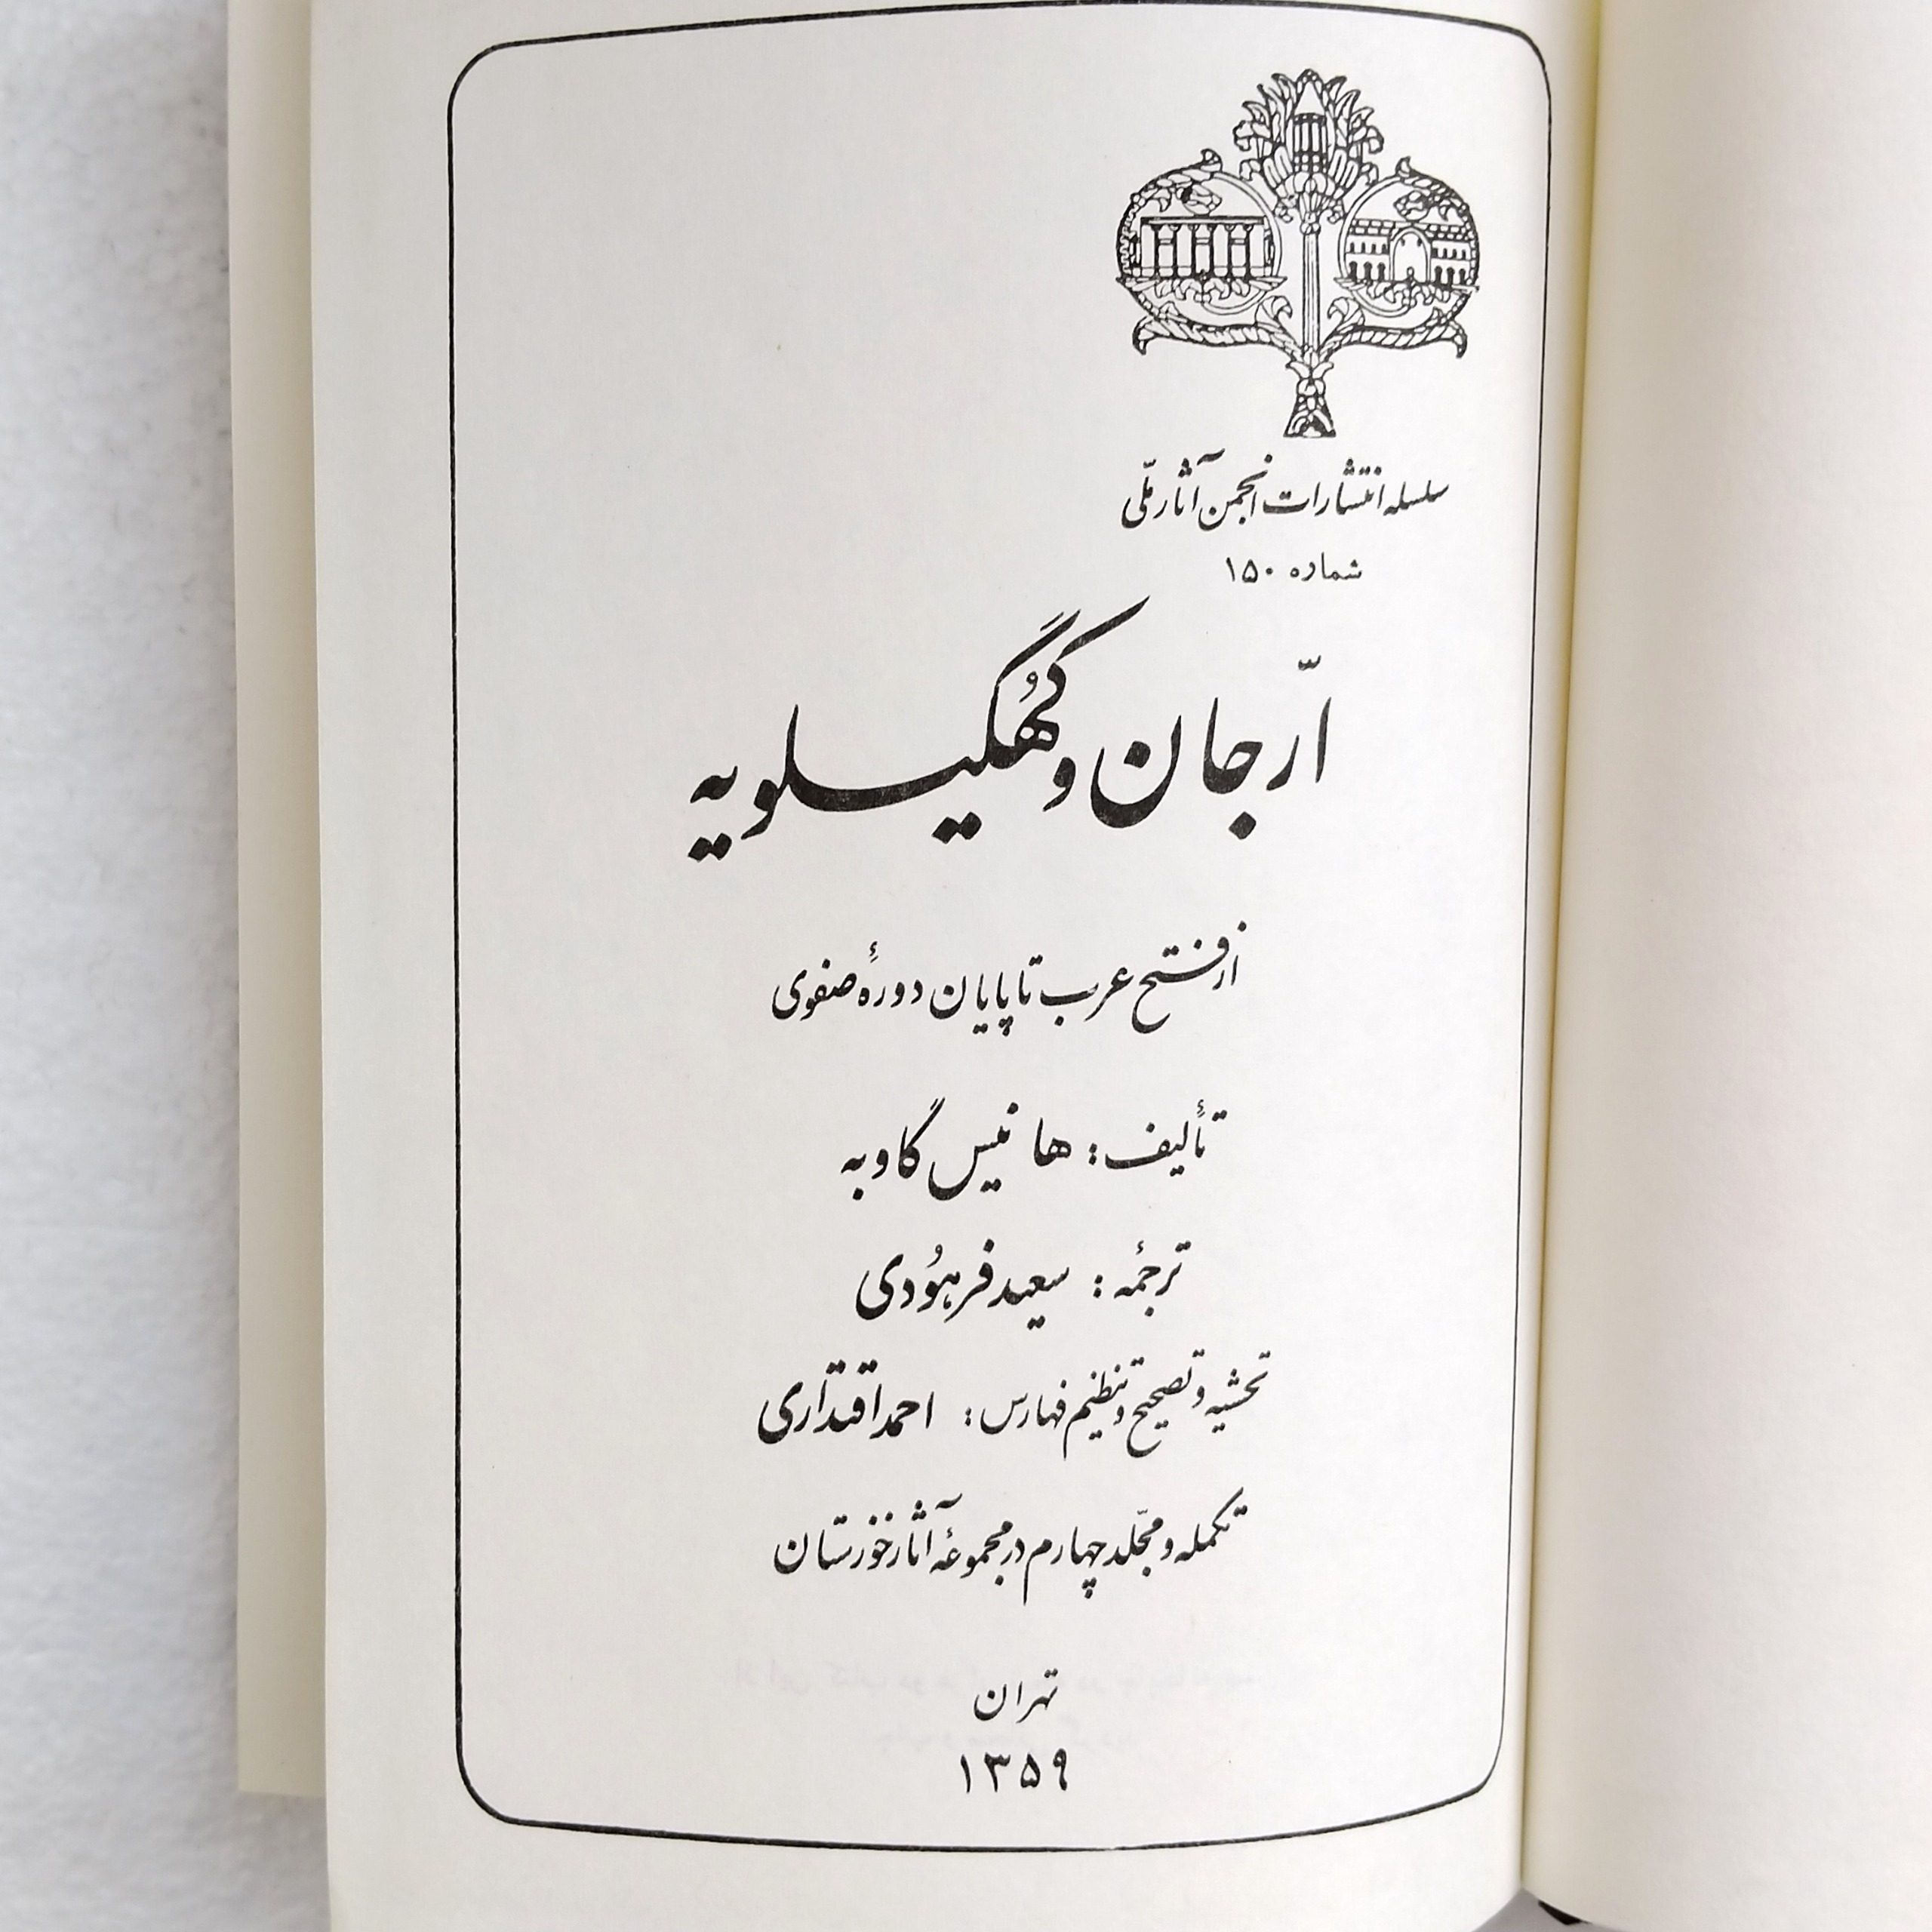 سلسله انتشارات انجمن آثار ملّی
شماره ۱۵۰
ارّجان و کُهگیلویه
از فتح عرب تا پایان دورهٔ صفوی
تألیف: هانیس گاوبه
ترجمهٔ: سعید فرهُودی
تحشیه و تصحیح و تنظیم فهارس: احمد اقتداری
تکمله و مجلّد چهارم در مجموعهٔ آثار خوزستان
تهران
۱۳۵۹